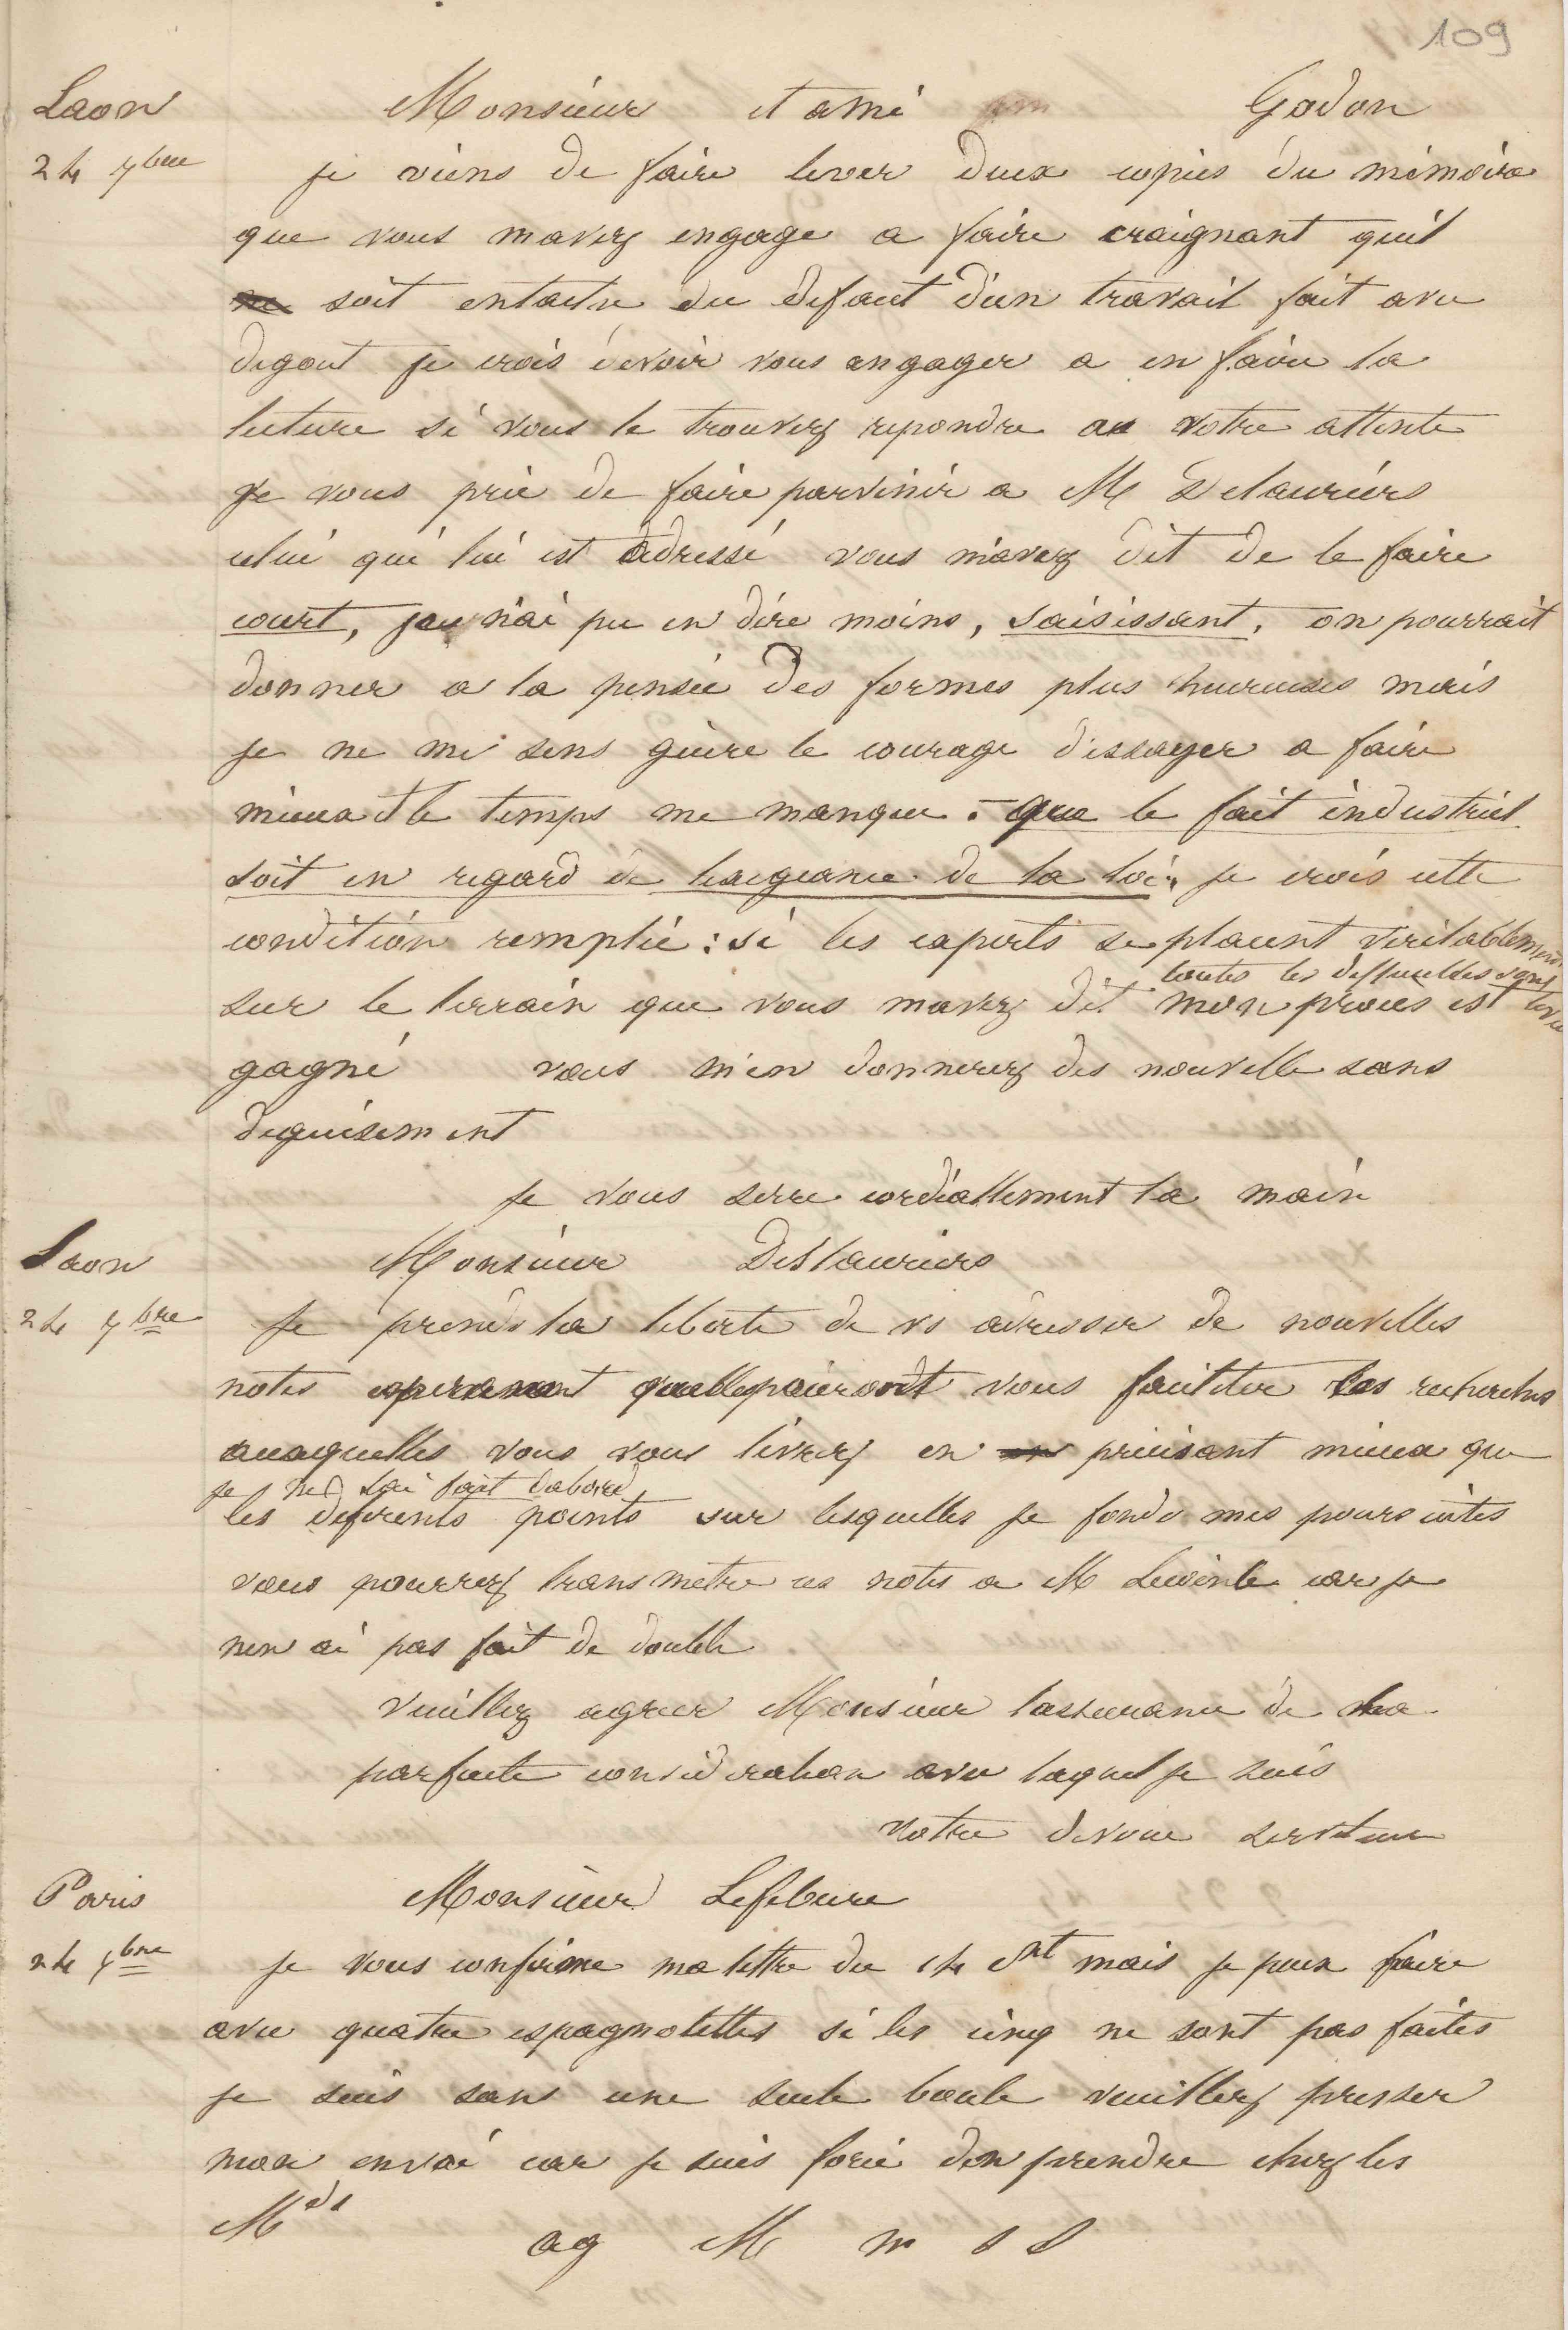 109
Laon Monsieur et ami Godon
24 7bre je viens de faire lever deux copies du mémoire
que vous mavez engage a faire craignant quil
soit entache du defaut d'un travail fait avec
degout je crois devoir vous angager a en faire la
lecture si vous le trouvez repondre a votre attente
je vous prie de faire parvenir a M Delauriers
celui qui lui est adressé vous m'avez dit de le faire
court, je n'ai pu en dire moins, saisissant, on pourrait
donner a la pensée des formes plus heureuses mais
je ne me sens guère le courage d'essayer a faire
mieux et le temps me manque. que le fait industriel
soit en regard de lexigeance de la loi, je crois cette
condition remplie : si les experts se placent veritablement
toutes les difficultes sont
sur le terrain que vous mavez dit mon proces est
gagné vous m'en donnerez des nouvelle sans
deguisement
je vous serre cordiallement la main
Laon Monsieur Deslauriers
24 7bre Je prends la liberte de vs adresser de nouvelles
notes esperant quelle pouront vous faciliter les recherches
auxquelles vous vous livrez en precisant mieux que
je ne l'ai fait dabord
les diferents points sur lesquelles je fonde mes poursuites
vous pourrez transmetre ces notes a M Lecointe car je
nen ai pas fait de double
Veuillez agreer Monsieur lassurance de ma
parfaite consideration avec laquel je suis
votre devoue serviteur
Paris Monsieur Lefebvre
24 7bre Je vous confirme ma lettre du 14 ct mais je peux faire
avec quatre espagnolettes si les cinq ne sont pas faites
je suis sans une seule boule veuillez presser
mon envoi car je suis forcé d'en prendre chez les
Mds
ag M m s s